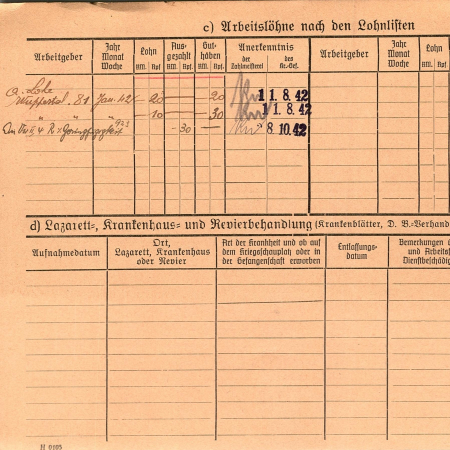 c) Arbeitslöhne nach den Lohnlisten
Arbeitgeber Jahr Monat Woche Lohn RM. Rpf Ausgezahlt RM. Rpf. Guthaben RM. Rpf. Anerkenntnis der Zahlmeisterei des Kr.-Gef. Arbeitgeber Jahr Monat Woche Lohn RM. Rpf
Wuppertal. 81 Jan. 42 20 — 20 11.8.42
" " " 10 — 30 11.8.42
- 30 - 8.10.42
d) Lazarett-, Krankenhaus- und Revierbehandlung (Krankenblätter, D. B.-Verhand
Aufnahmedatum
Ort, Lazarett, Krankenhaus oder Revier
Art der Krankheit und ob auf dem Kriegsschauplatz oder in der Gefangenschaft erworben
Entlassungs-datum
Bemerkungen
und Arbeits
Dienstbeschädig